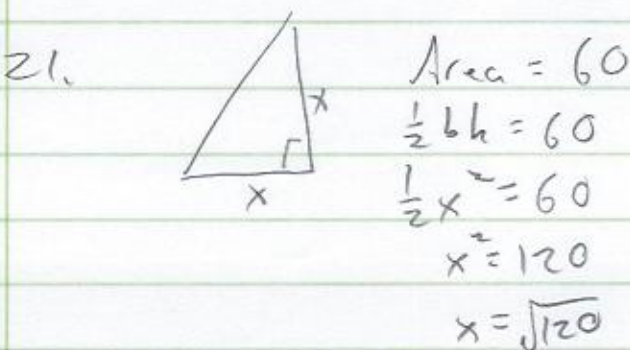 21.
x
x
Area = 60
½bh = 60
½x² = 60
x² = 120
x = √120